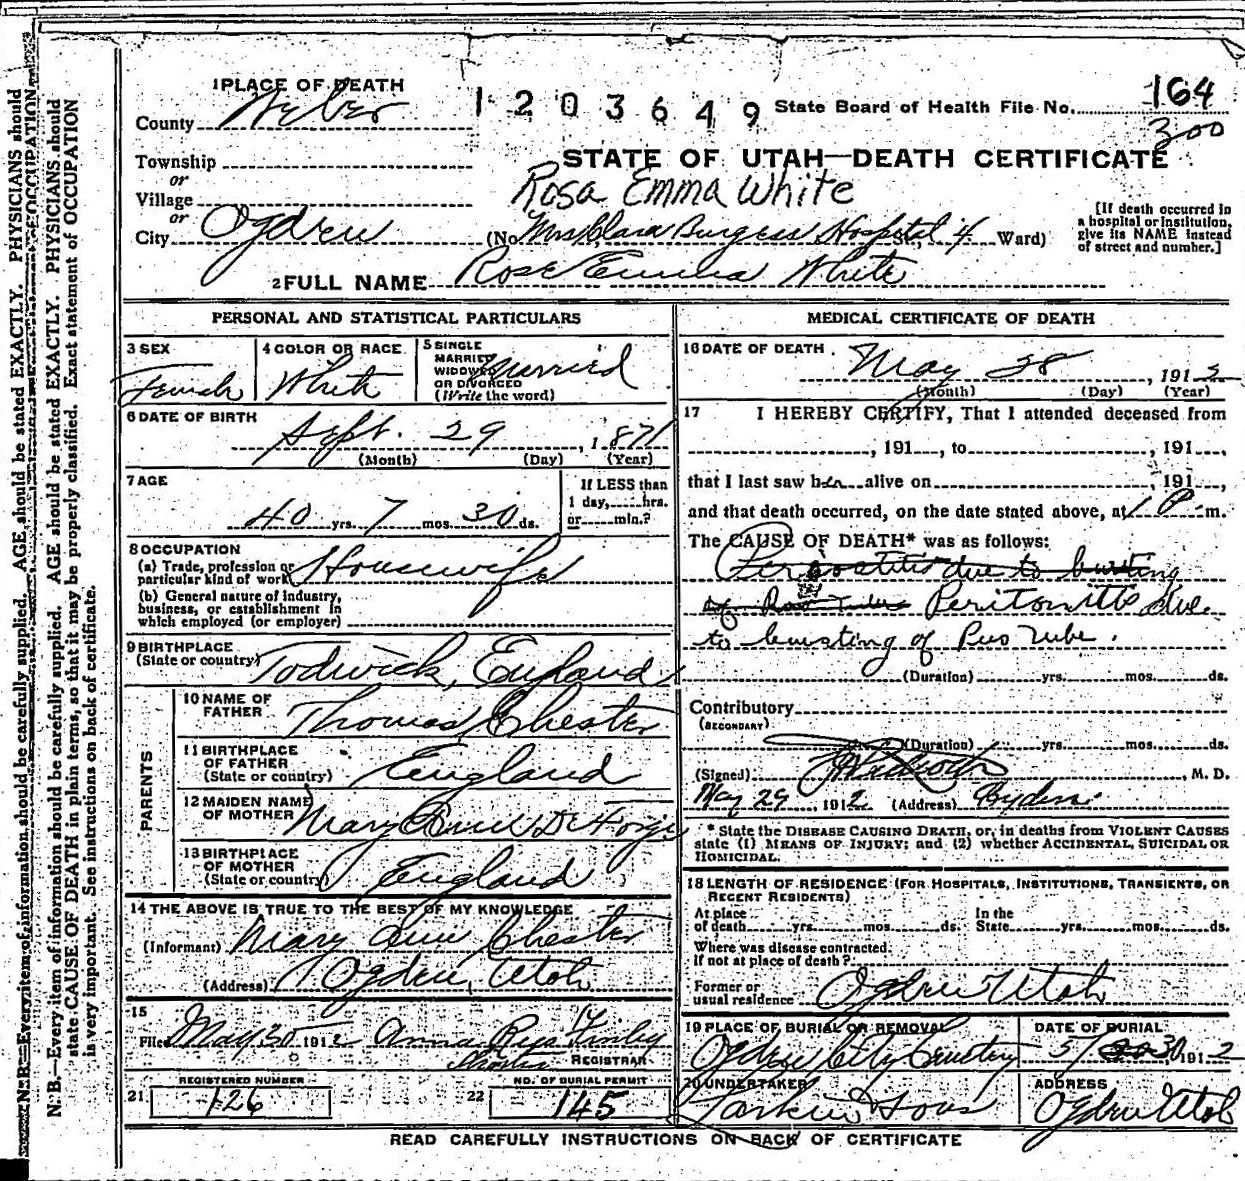 N. B.—Every item of information should be carefully supplied. AGE should be stated EXACTLY. PHYSICIANS should
state CAUSE OF DEATH in plain terms, so that it may be properly classified. Exact statement of OCCUPATION
is very important. See instructions on back of certificate.
1 PLACE OF DEATH
County Weber
1203649
State Board of Health File No. 164
300
Township
or
Village
or
City Ogden
STATE OF UTAH—DEATH CERTIFICATE
Rosa Emma White
(No. Mrs Clara Burgess Hospital, 4 Ward)
[If death occurred in
a hospital or institution,
give its NAME instead
of street and number.]
2 FULL NAME Rose Emma White
PERSONAL AND STATISTICAL PARTICULARS
3 SEX
Female
4 COLOR OR RACE
White
5 SINGLE
MARRIED
WIDOWED
OR DIVORCED
(Write the word)
Married
6 DATE OF BIRTH
Sept. 29, 1871
(Month) (Day) (Year)
7 AGE
40 yrs. 7 mos. 30 ds.
If LESS than
1 day, hrs.
or min.?
8 OCCUPATION
(a) Trade, profession or
particular kind of work Housewife
(b) General nature of industry,
business, or establishment in
which employed (or employer)
9 BIRTHPLACE
(State or country) Todwick, England
PARENTS
10 NAME OF
FATHER Thomas Chester
11 BIRTHPLACE
OF FATHER
(State or country) England
12 MAIDEN NAME
OF MOTHER Mary Ann
13 BIRTHPLACE
OF MOTHER
(State or country) England
14 THE ABOVE IS TRUE TO THE BEST OF MY KNOWLEDGE
(Informant) Mary Ann Chester
(Address) Ogden, Utah
15
Filed May 30 1912 Anna
REGISTRAR
REGISTERED NUMBER
21 126
NO. OF BURIAL PERMIT
22 145
MEDICAL CERTIFICATE OF DEATH
16 DATE OF DEATH
May 28, 1912
(Month) (Day) (Year)
17 I HEREBY CERTIFY, That I attended deceased from
, 191 , to , 191 ,
that I last saw her alive on , 191 ,
and that death occurred, on the date stated above, at 1 P m.
The CAUSE OF DEATH* was as follows:
due to bursting
of Peritonitis due
to bursting of Pus Tube.
(Duration) yrs. mos. ds.
Contributory
(SECONDARY)
(Duration) yrs. mos. ds.
(Signed) , M. D.
May 29, 1912 (Address) Ogden
* State the DISEASE CAUSING DEATH, or, in deaths from VIOLENT CAUSES
state (1) MEANS OF INJURY; and (2) whether ACCIDENTAL, SUICIDAL OR
HOMICIDAL.
18 LENGTH OF RESIDENCE (FOR HOSPITALS, INSTITUTIONS, TRANSIENTS, OR
RECENT RESIDENTS)
At place
of death yrs. mos. ds.
In the
State yrs. mos. ds.
Where was disease contracted.
if not at place of death?
Former or
usual residence Ogden Utah
19 PLACE OF BURIAL OR REMOVAL
Ogden City Cemetery
DATE OF BURIAL
5/30 1912
20 UNDERTAKER
Larkin & Sons
ADDRESS
Ogden Utah
READ CAREFULLY INSTRUCTIONS ON BACK OF CERTIFICATE